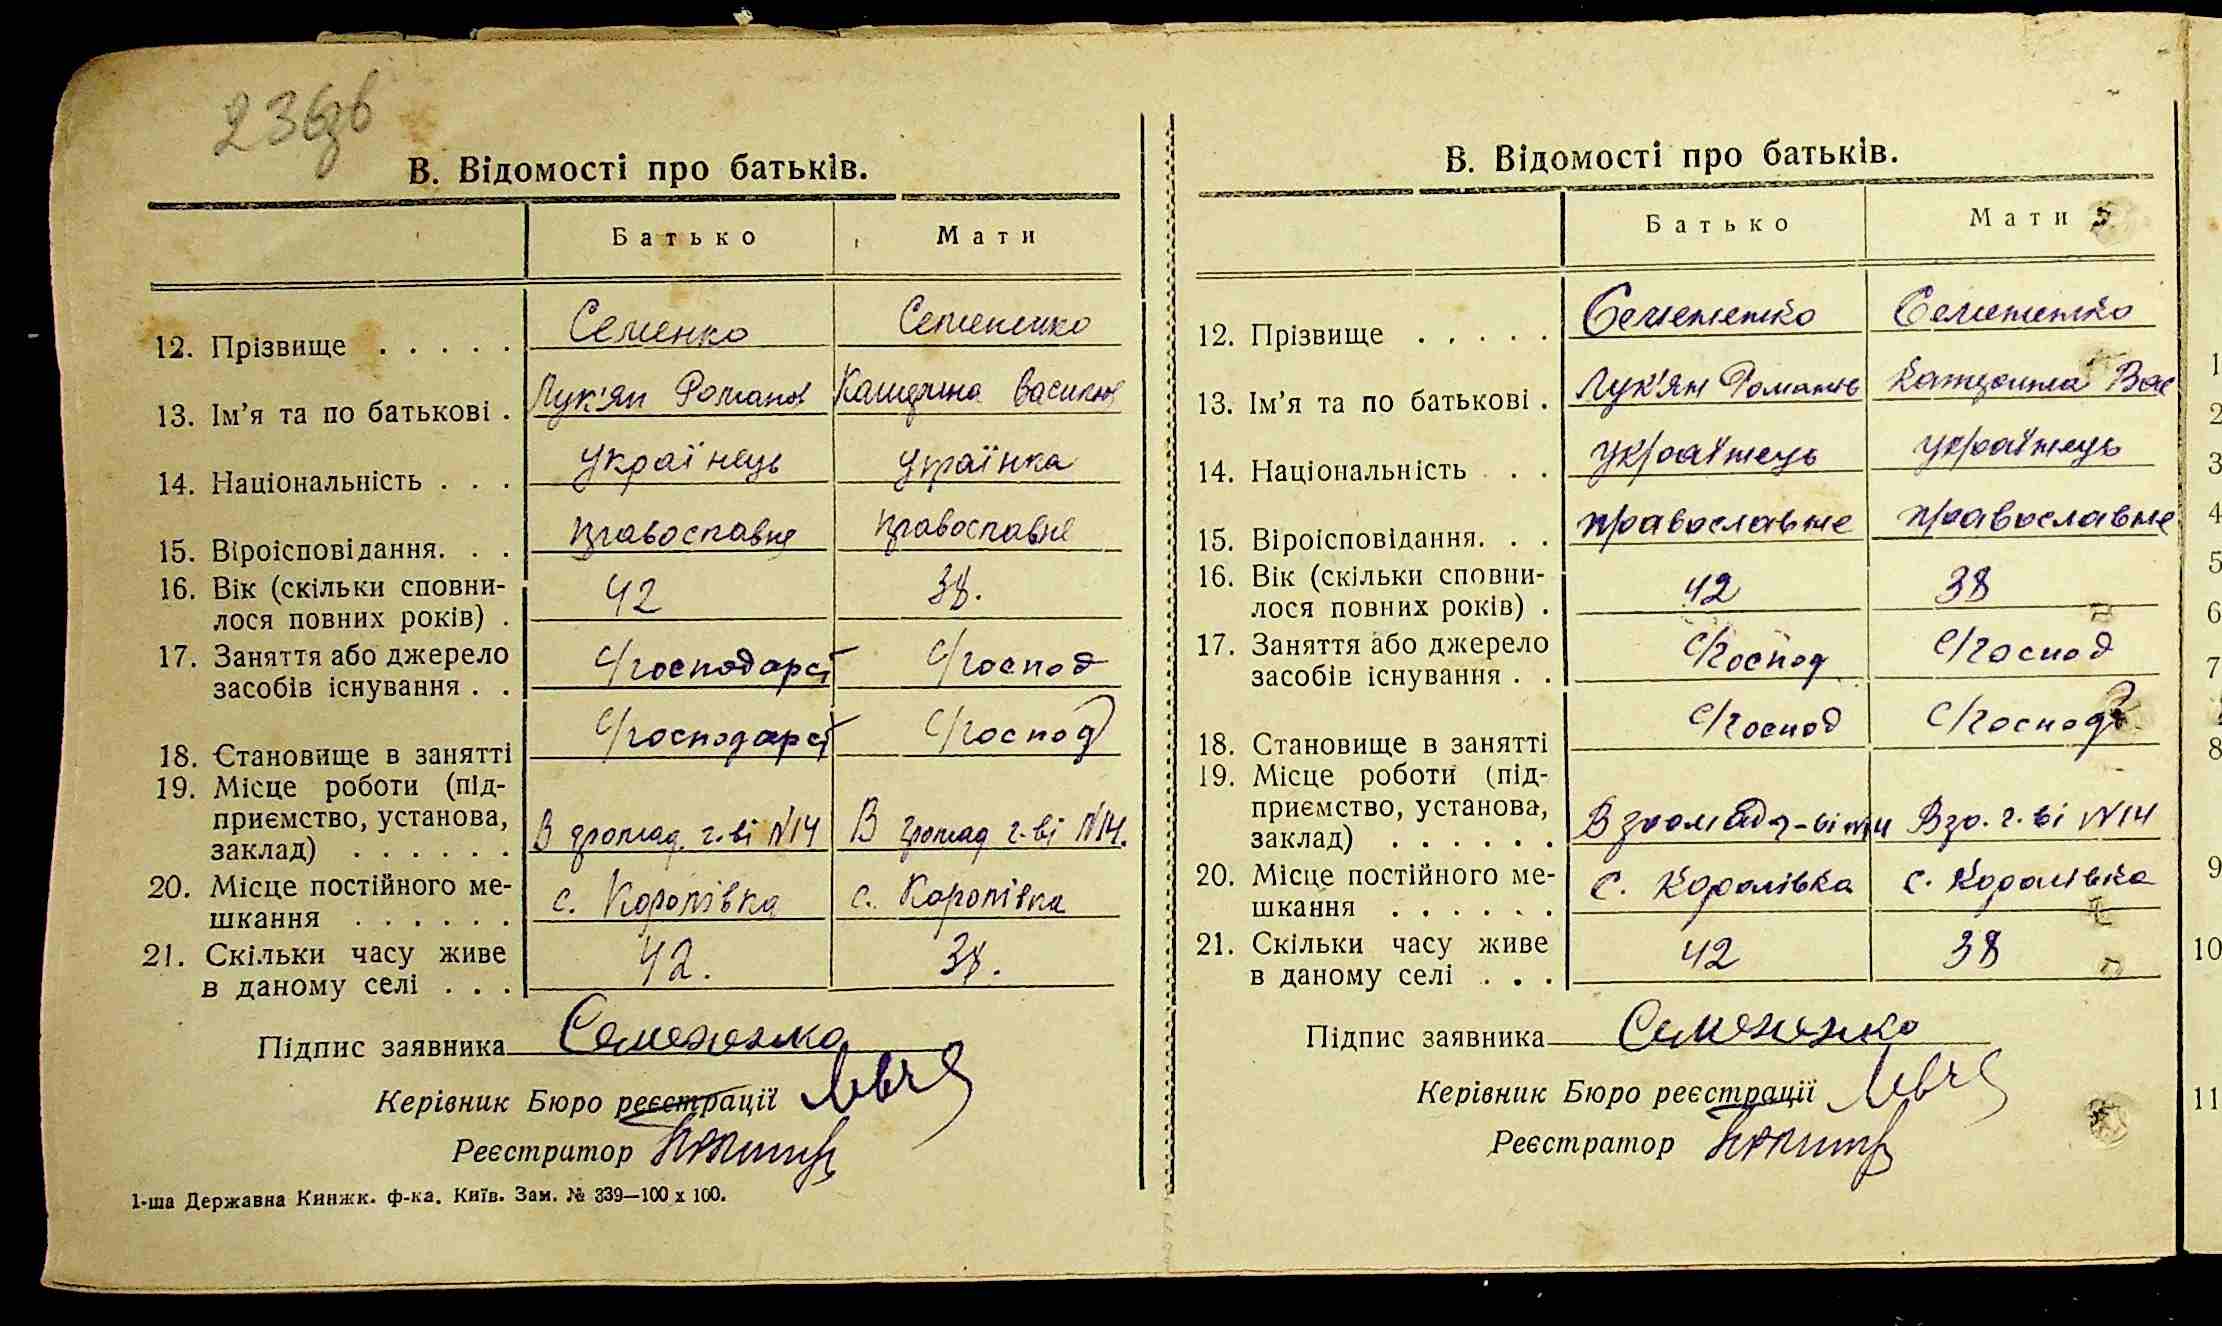 236зв
В. Відомості про батьків.
Батько Мати
12. Прізвище . . . . . Семенко Семененко
13. Ім'я та по батькові . Лук'ян Роман Катерина Васил
14. Національність . . . Українець Українка
15. Віроісповідання. . . православне православне
16. Вік (скільки сповни-
лося повних років) . 42 38.
17. Заняття або джерело
засобів існування . . с/господарст с/господ
18. Становище в занятті с/господарст с/господ
19. Місце роботи (під-
приємство, установа,
заклад) . . . . . . В громад. г-ві №14 В громад г-ві №14.
20. Місце постійного ме-
шкання . . . . . . с. Королівка с. Королівка
21. Скільки часу живе
в даному селі . . . 42. 38.
Підпис заявника Семененко
Керівник Бюро реєстрації
Реєстратор
1-ша Державна Книжк. ф-ка. Київ. Зам. № 339—100 х 100.
В. Відомості про батьків.
Батько Мати
12. Прізвище . . . . . Семененко Семененко
13. Ім'я та по батькові . Лук'ян Романов Катерина Вас
14. Національність . . . українець українець
15. Віроісповідання. . . православне православне
16. Вік (скільки сповни-
лося повних років) . 42 38
17. Заняття або джерело
засобів існування . . с/господ с/господ
18. Становище в занятті с/господ с/господ
19. Місце роботи (під-
приємство, установа,
заклад) . . . . . . В громад г-ві №14 В гро. г-ві №14
20. Місце постійного ме-
шкання . . . . . . с. Королівка с. Королівка
21. Скільки часу живе
в даному селі . . . 42 38
Підпис заявника Семененко
Керівник Бюро реєстрації
Реєстратор
1
2
3
4
5
6
7
8
9
10
11